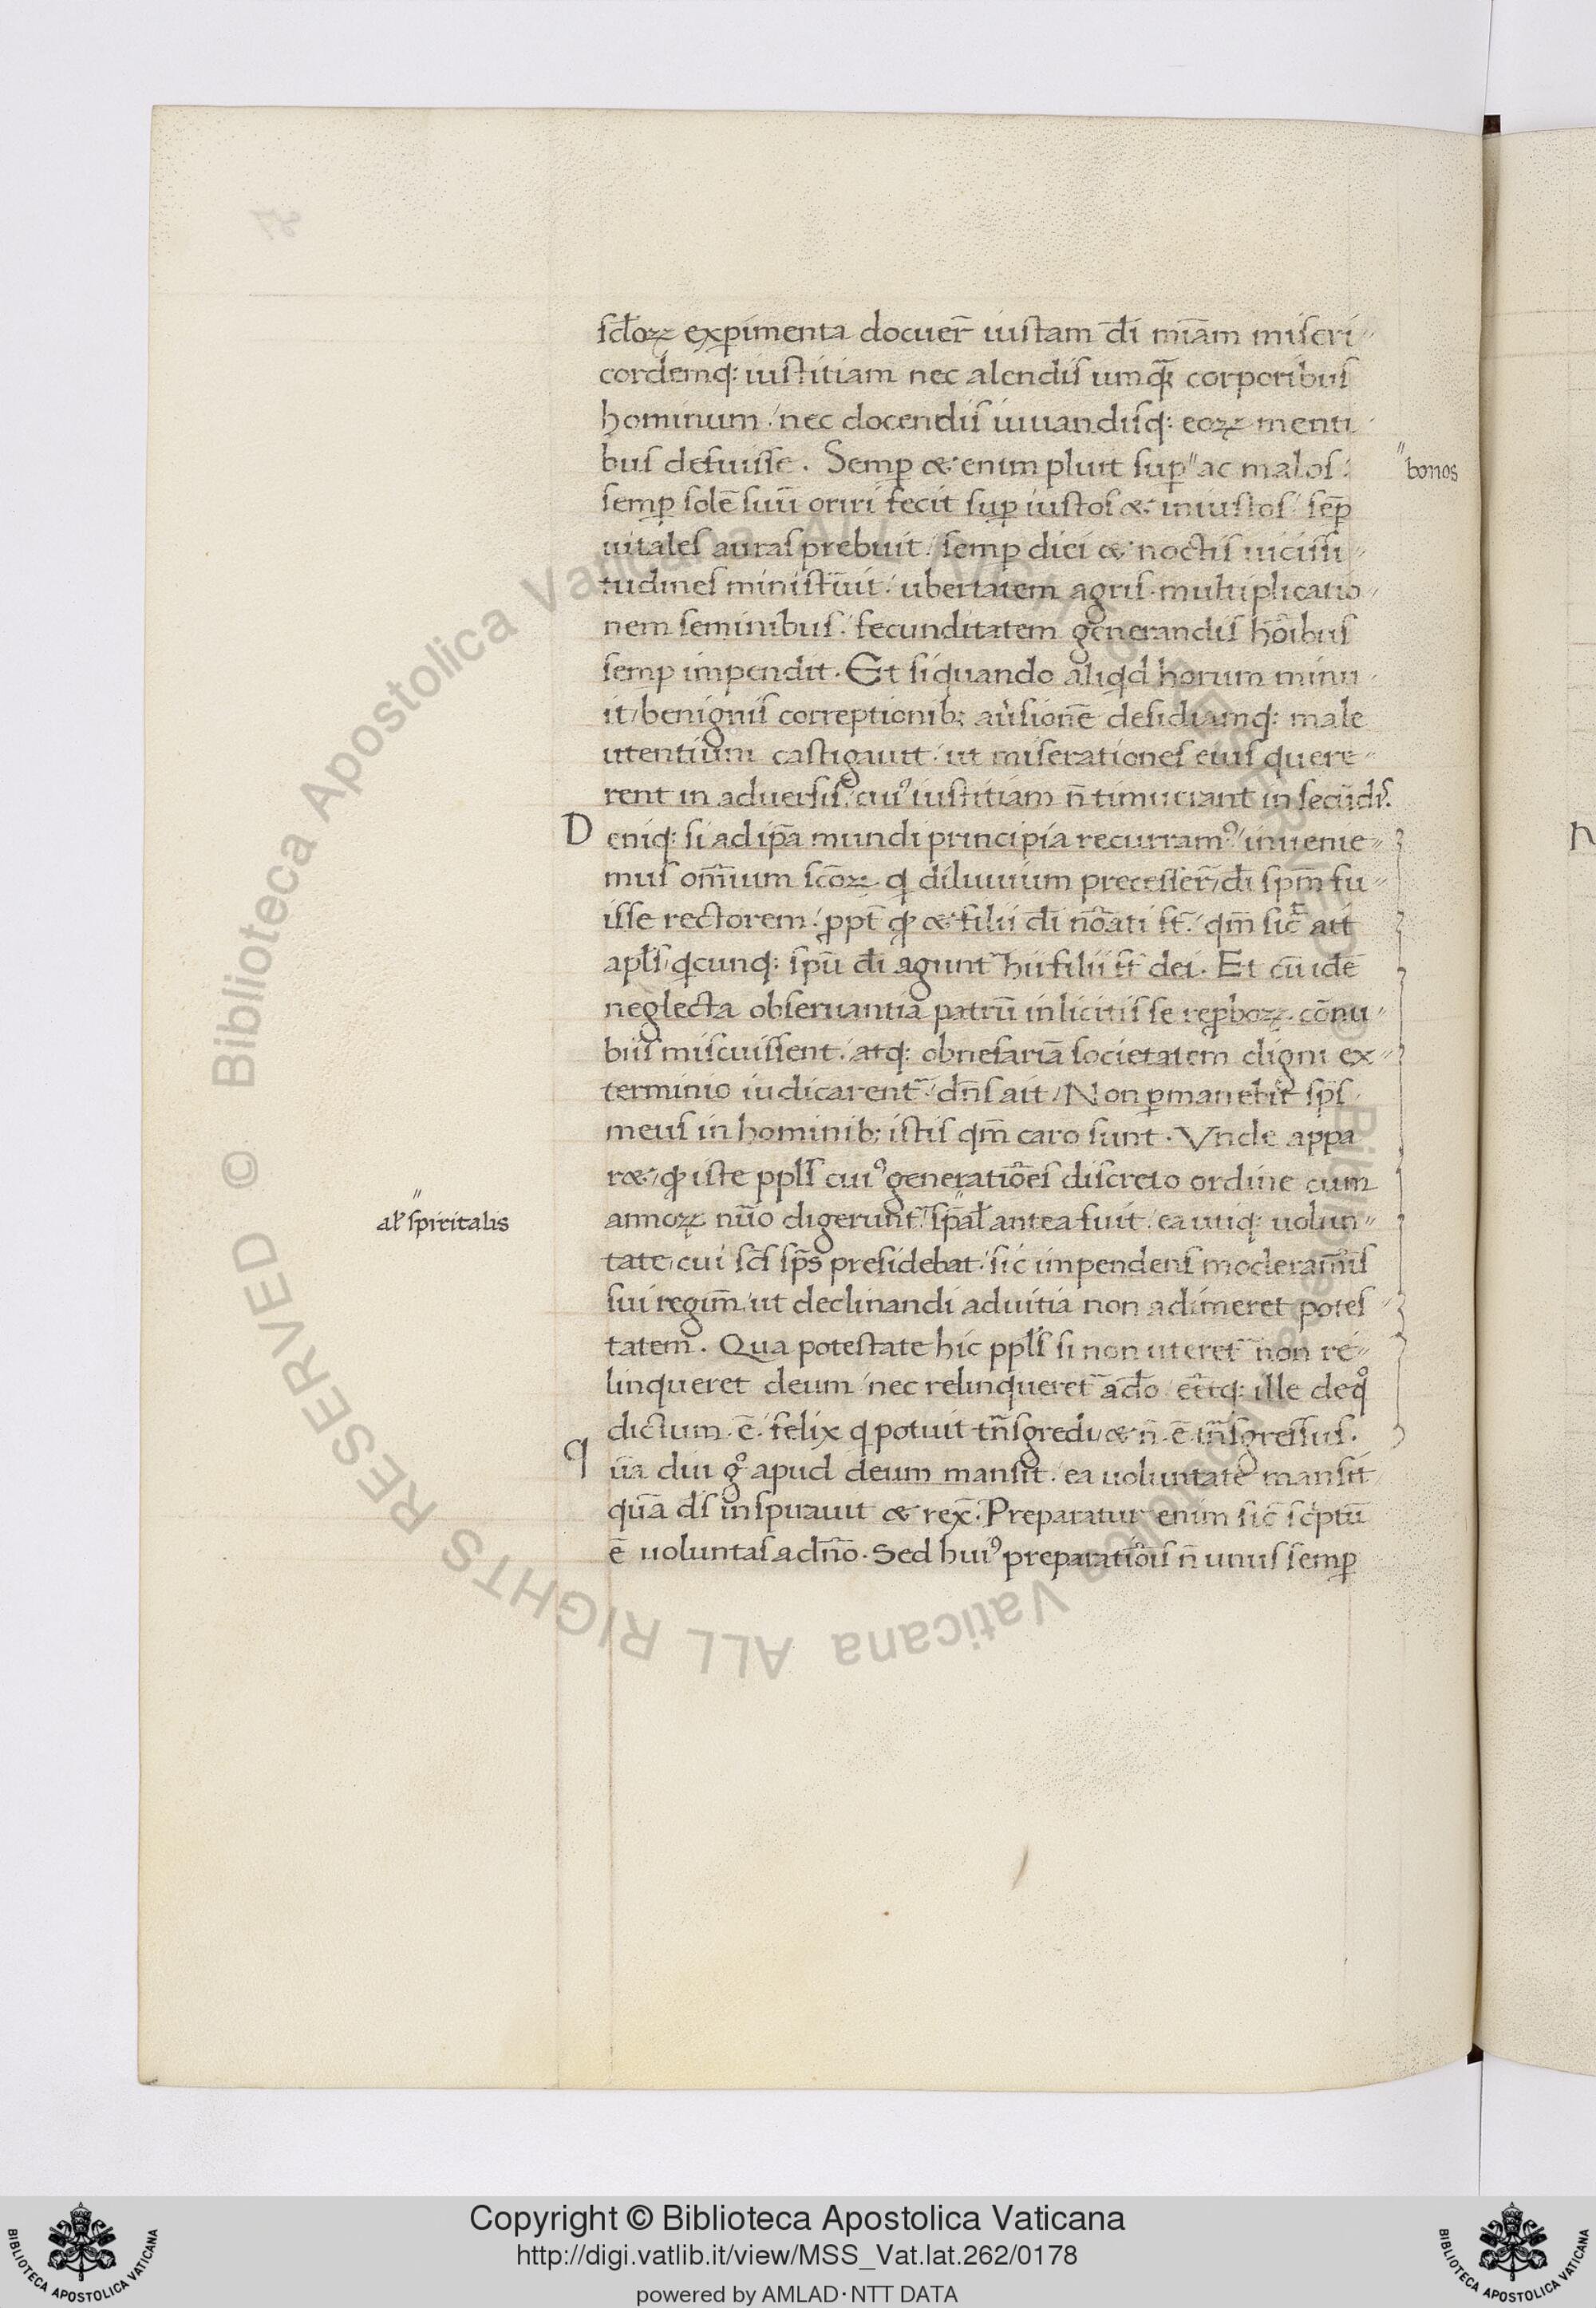 sclo℞ exꝑimenta docuer̄ iustam d̄i mīam miseri″
cordemq: iustitiam nec alendis umq̄; corporibus
hominum / nec docendis iuuandisq: eo℞ menti
bus defuisse . Semꝑ & enim pluit suꝑ″ ac malos :
″bonos
semꝑ solē suū oriri fecit suꝑ iustos & iniustos / sēꝑ
uitales auras prebuit / semꝑ diei & noctis uicissi″
tudines minist̄uit / ubertatem agris . multiplicatio″
nem seminibus / fecunditatem generandis hōibus
semꝑ impendit . Et siquando aliqd horum minu
it / benignis correptionib; au̓sionē desidiamq: male
utentium castigauit / ut miserationes eius quere″
rent in aduersis / cuiꝰ iustitiam n̄ timuerant in secūdis.
Deniq: si ad ip̄a mundi principia recurramꝰ / inuenie″
mus om̄ium sc̄o℞ . q diluuium precesser̄ / d̄i sp̄m fu″
isse rectorem / ꝓpt̄ qꝫ & filii d̄i nōati st̄ / qm̄ sic̄ ait
apl̄s / qcunq: spū d̄i agunt̄ hii filii st̄ dei . Et cū idē
neglecta obseruantia patrū inlicitis se reꝓbo℞ . cōnu″
biis miscuissent / atq: ob nefariā societatem digni ex″
terminio iudicarent̄ / dn̄s ait / Non ꝑmanebit sp̄s
meus in hominib; istis qm̄ caro sunt . Vnde appa
r& / qꝫ iste ppl̄s cuiꝰ generatiōes discreto ordine cum
anno℞ nūo digerunt̄ / ″sp̄al̄ antea fuit / ea utiq: uolun″
″al̓ spiritalis
tate / cui sc̄s sp̄s presidebat / sic impendens moderam̄is
sui regim̄ / ut declinandi aduitia non adimeret potes″
tatem . Qua potestate hic ppl̄s si non uteret̄ non re″
linqueret deum / nec relinqueret̄ ado / eēt̄q: ille deqͦ
dictum . ē / felix q potuit tn̄sgredi / & n̄ . ē tn̄sgressus .
qūa diu gͦ apud deum mansit / ea uoluntate mansit
quā d̄s inspirauit & rex̄ . Preparatur enim sic̄ scͥptū
ē uoluntas adn̄o . Sed huiꝰ preparatiōis n̄ unus semꝑ
© Biblioteca Apostolica Vaticana ALL RIGHTS RESERVED © Biblioteca Apostolica Vaticana ALL RIGHTS RESERVED
Copyright © Biblioteca Apostolica Vaticana
http://digi.vatlib.it/view/MSS_Vat.lat.262/0178
powered by AMLAD·NTT DATA
BIBLIOTECA APOSTOLICA VATICANA
BIBLIOTECA APOSTOLICA VATICANA